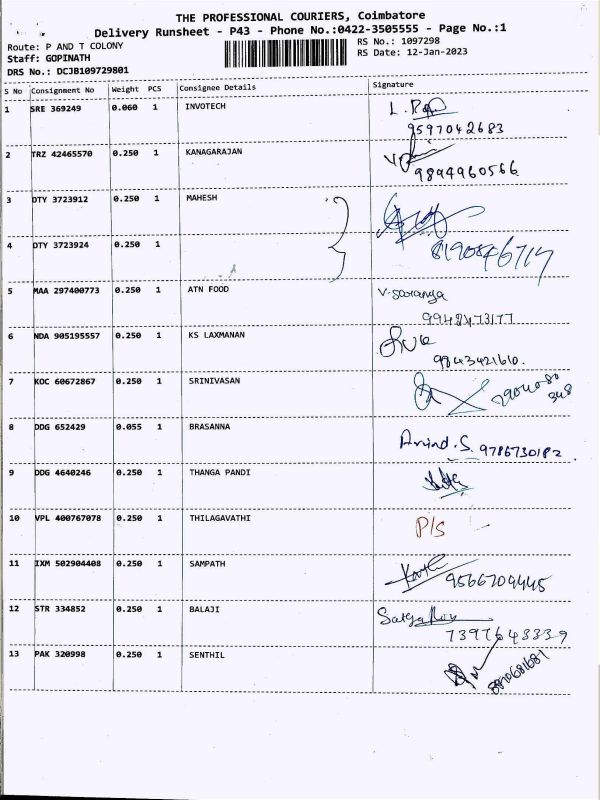 THE PROFESSIONAL COURIERS, Coimbatore
Delivery Runsheet - P43 - Phone No.:0422-3505555 - Page No.:1
Route: P AND T COLONY RS No.: 1097298
Staff: GOPINATH RS Date: 12-Jan-2023
DRS No.: DCJB109729801
S No Consignment No Weight PCS Consignee Details Signature
1 SRE 369249 0.060 1 INVOTECH
9597042683
2 TRZ 42465570 0.250 1 KANAGARAJAN
9894960566
3 DTY 3723912 0.250 1 MAHESH
4 DTY 3723924 0.250 1
5 MAA 297400773 0.250 1 ATN FOOD V. Saranya
6 NDA 905195557 0.250 1 KS LAXMANAN
9843421610.
7 KOC 60672867 0.250 1 SRINIVASAN
8 DDG 652429 0.055 1 BRASANNA
Arvind.S. 9786730182
9 DDG 4640246 0.250 1 THANGA PANDI
10 VPL 400767078 0.250 1 THILAGAVATHI P/S
11 IXM 502904408 0.250 1 SAMPATH
9566709445
12 STR 334852 0.250 1 BALAJI
7397643339
13 PAK 320998 0.250 1 SENTHIL